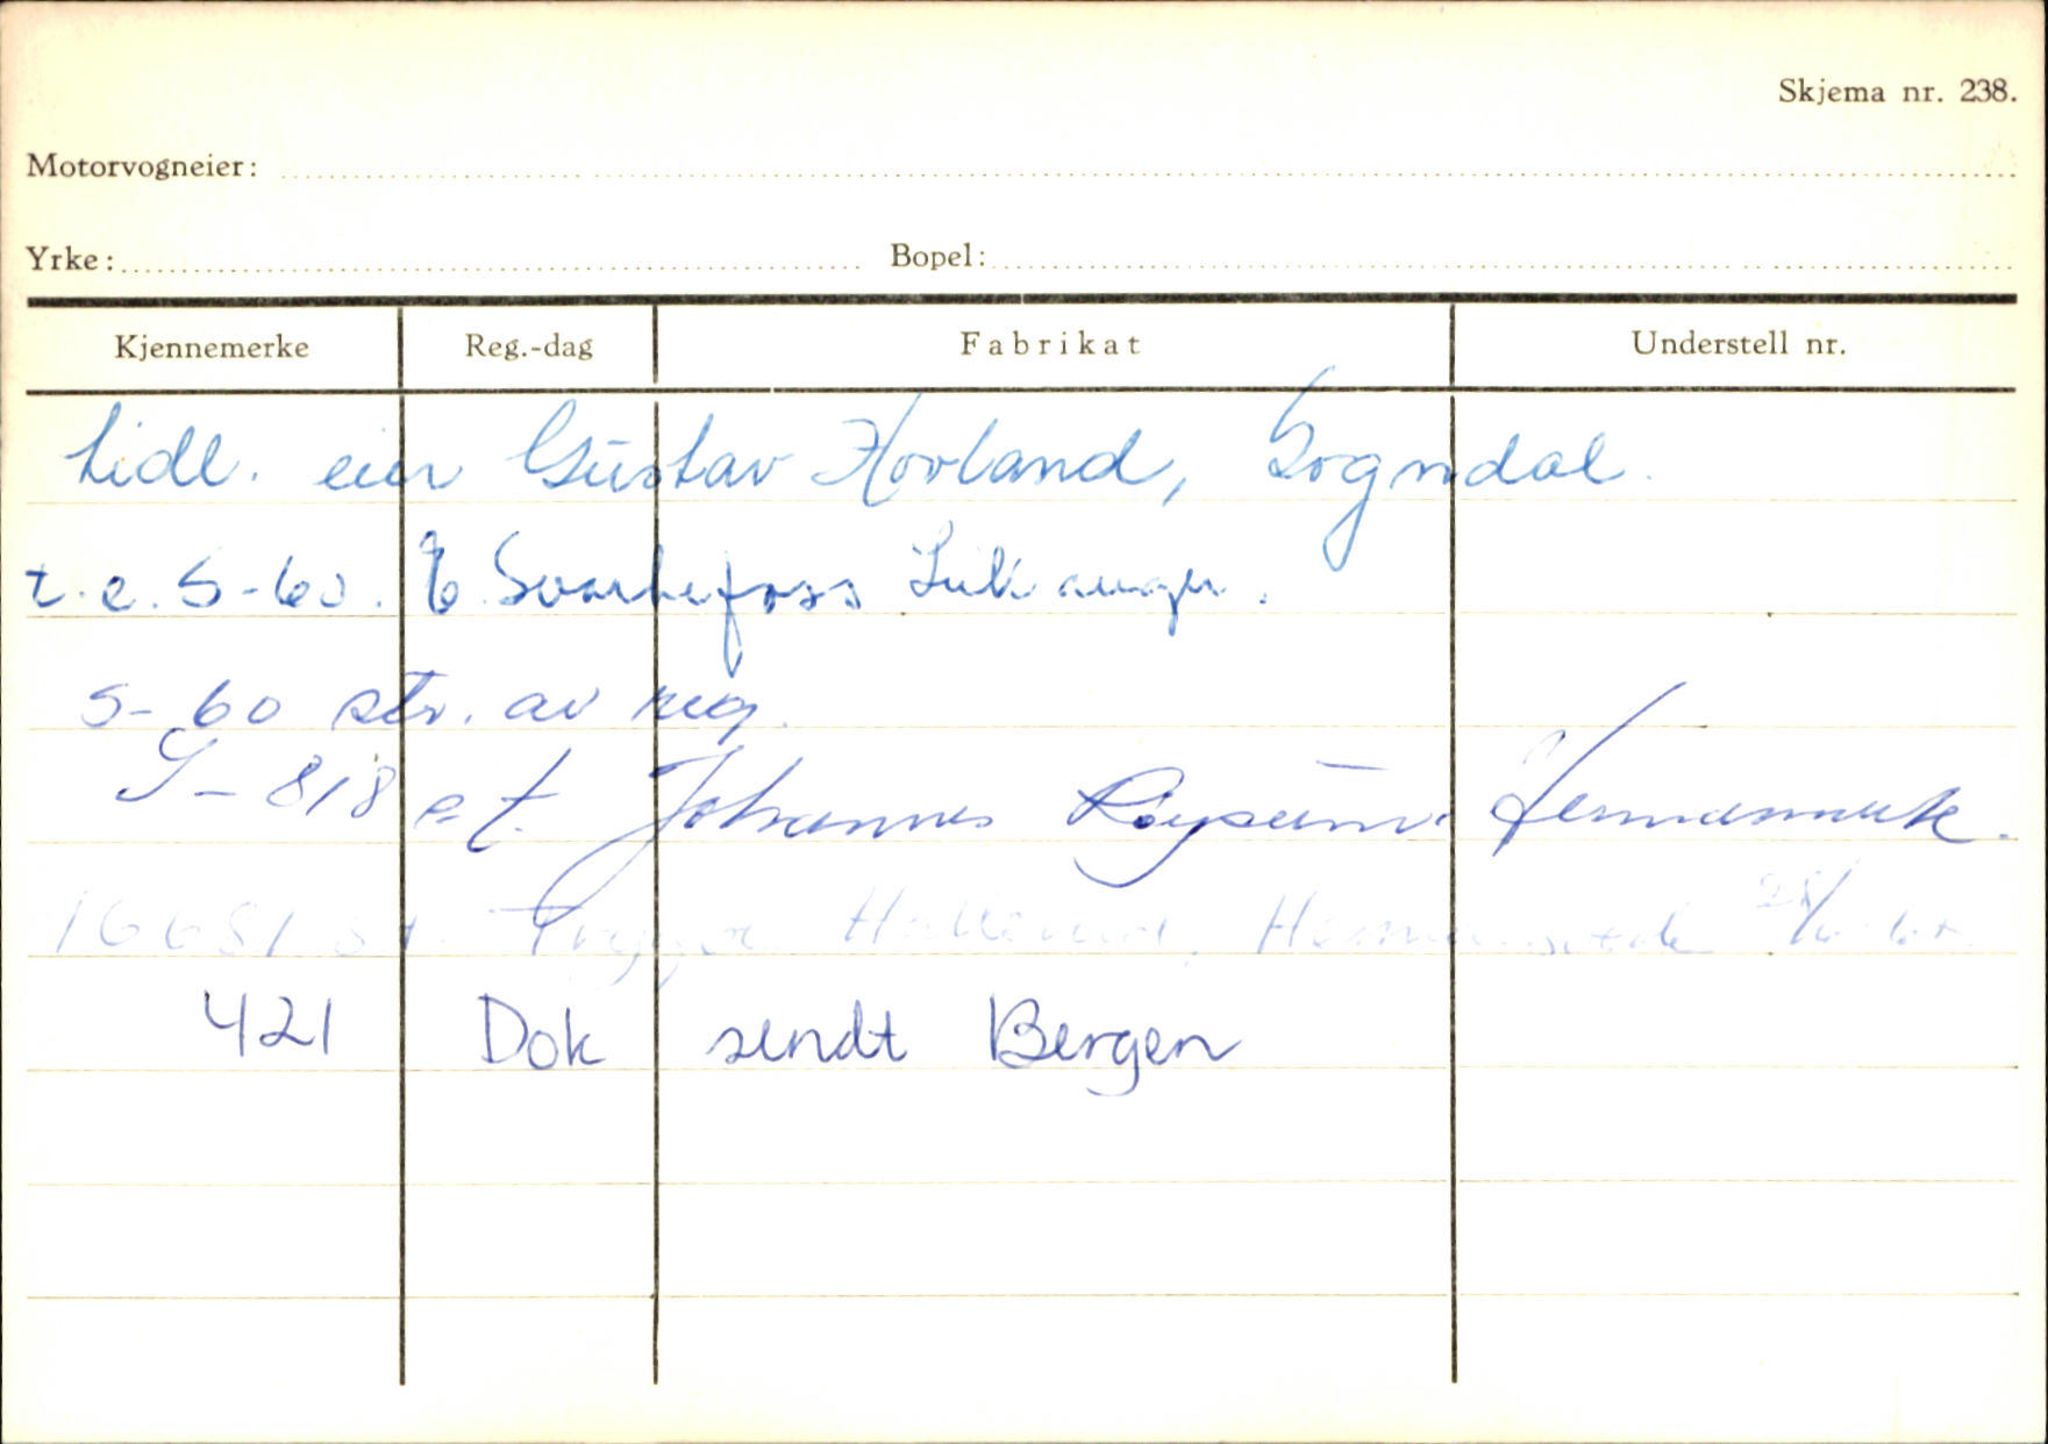 Skjema nr. 238.
Motorvogneier:
Yrke: Bopel:
Kjennemerke Reg.-dag Fabrikat Understell nr.
tidl. eier Gustav Hovland, Sogndal.
t.e. S-60. E. Svartefoss Leikanger.
S-60 str. av reg.
S-818 e t. Johannes Røysum. Hermansverk.
16681 Trygve Hermansverk
421 Dok sendt Bergen